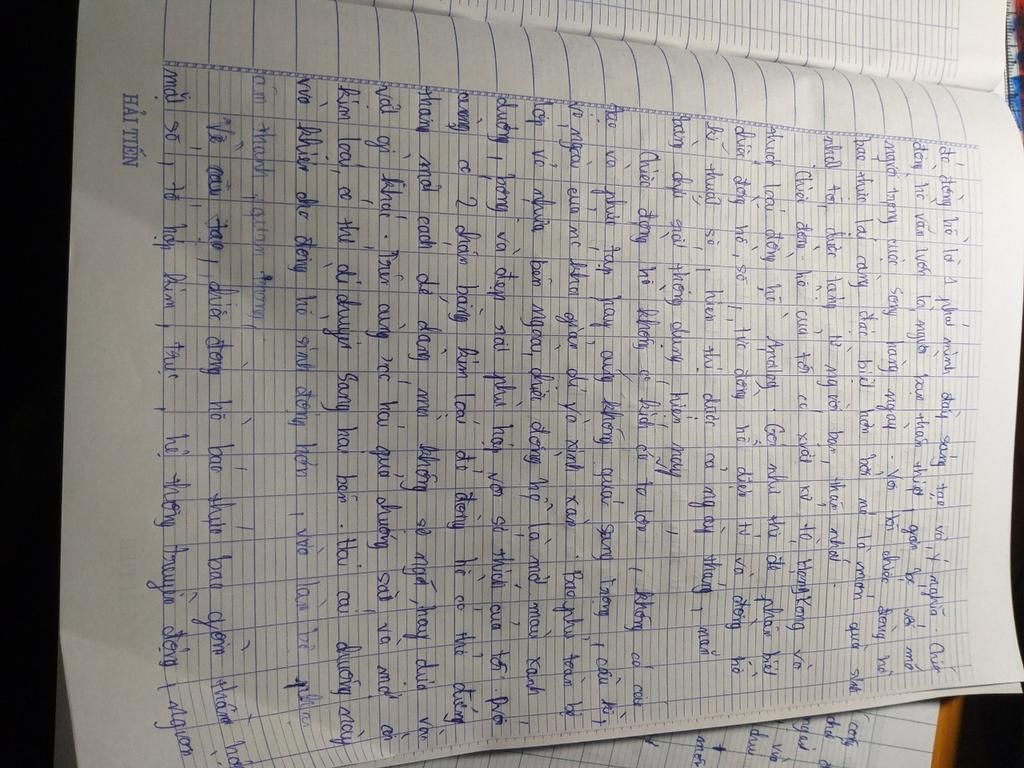 đó đồng hồ là 1 phát minh đầy sáng tạo và ý nghĩa. Chiếc
đồng hồ vẫn luôn là người bạn thân thiết, gắn bó với mỗi
người trong cuộc sống hàng ngày. Với tôi chiếc đồng hồ
báo thức lại càng đặc biệt hơn bởi nó là món quà sinh
nhật tôi được tặng từ người bạn thân nhất.
Chiếc đồng hồ của tôi có xuất xứ từ HongKong và
thuộc loại đồng hồ Analog. Gồm như thế để phân biệt
chiếc đồng hồ số, tức đồng hồ điện tử và đồng hồ
kĩ thuật số, hiển thị được cả ngày tháng, năm
bằng dãy giờ thông dụng hiện nay
Chiếc đồng hồ không có kích cỡ to lớn, không có cấu
tạo và phức tạp hay cũng không quá sang trọng, cầu kì,
vẻ ngoài của nó khá giản dị và xinh xắn. Bao phủ toàn bộ
lớp vỏ nhựa bên ngoài chiếc đồng hồ là màu xanh
dương, bóng và đẹp rất phù hợp với sở thích của tôi. Dưới
cùng có 2 chân bằng kim loại để đồng hồ có thể đứng
thăng một cách dễ dàng mà không sợ ngã hay dựa vào
vật gì khác. Trên cùng, có hai quả chuông sắt và một cần
kim loại, có thể di chuyển sang hai bên. Hai cái chuông này
vừa khiến cho đồng hồ sinh động hơn, vừa làm bộ phận
âm thanh quan trọng
Về cấu tạo, chiếc đồng hồ báo thức bao gồm thân hồ
mặt số, tổ hợp kim, trục, hệ thống truyền động, nguồn
HẢI TIẾN